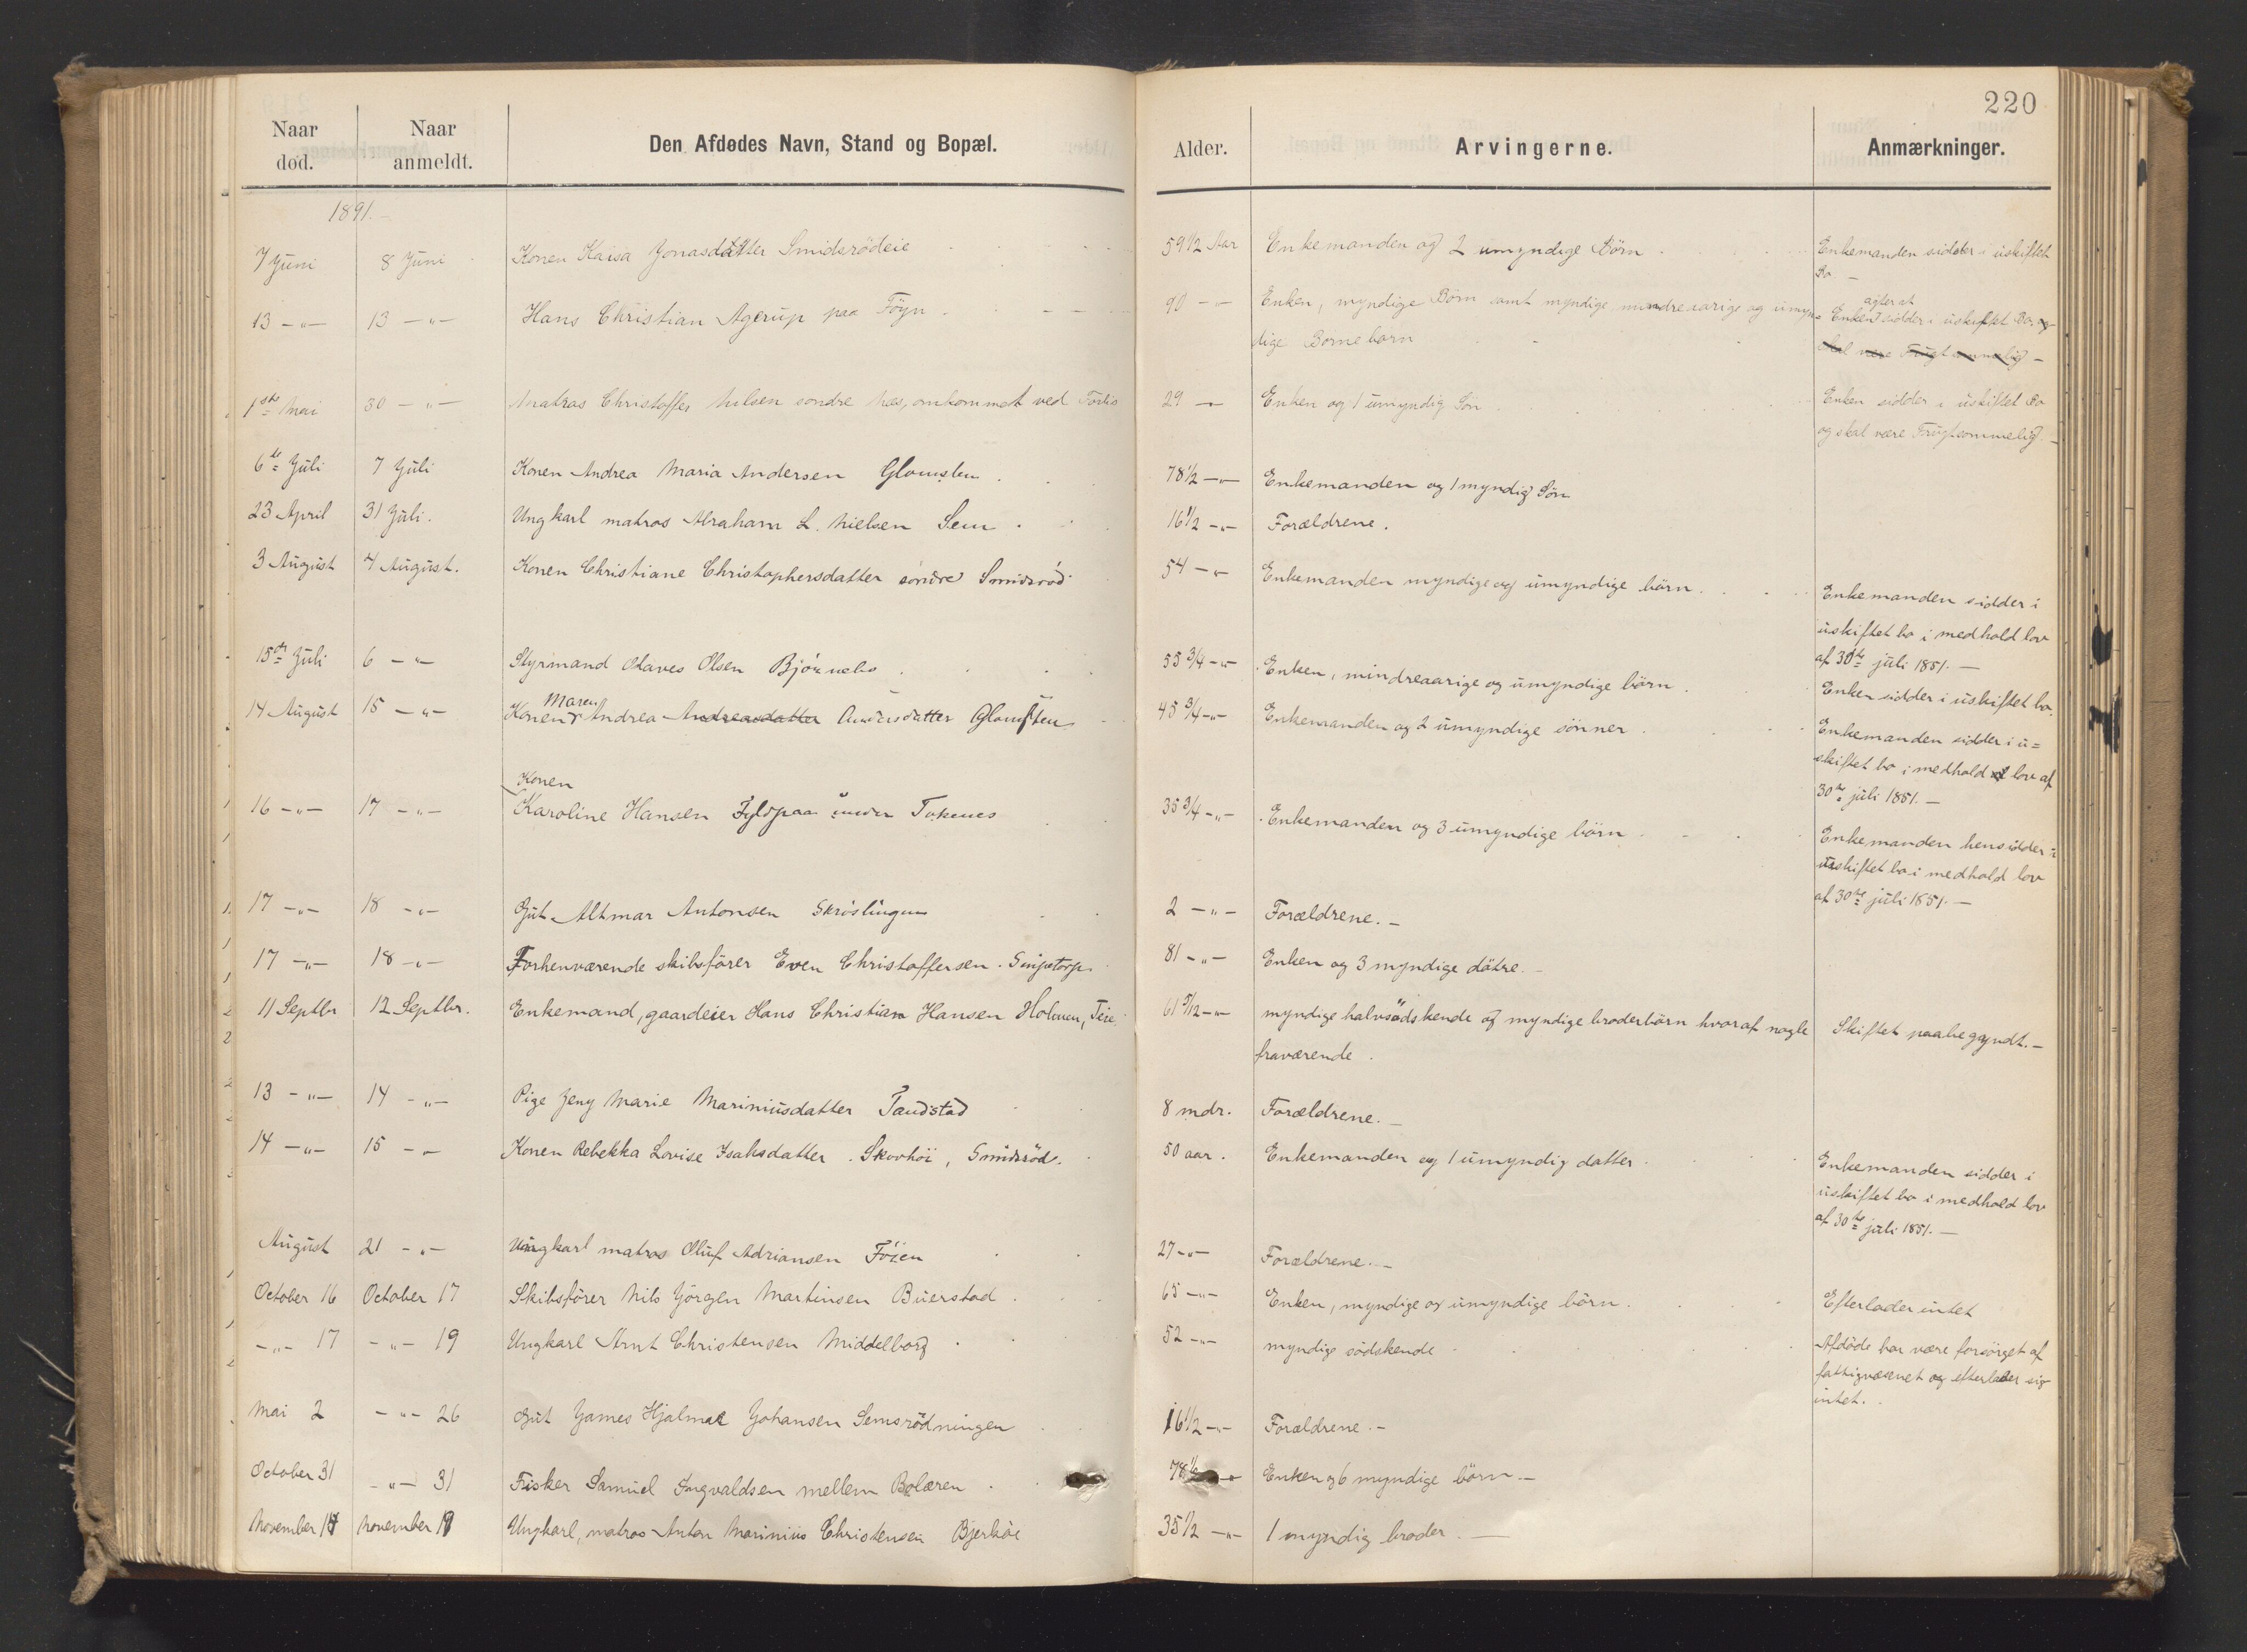 220
Naar død. Naar anmeldt. Den Afdødes Navn, Stand og Bopæl. Alder. Arvingerne. Anmærkninger.
1891.
7 Juni 8 Juni Konen Kaisa Jonasdatter Smidsrödeie 59 1/2 Aar Enkemanden og 2 umyndige Börn Enkemanden sidder i uskiftet
Bo. —
13 —"— 13 —"— Hans Christian Agerup paa Föyn 90 —"— Enken, myndige Börn samt myndige mindreaarige og umyn= Enken agter at sidde i uskiftet Bo. og
dige Börnebörn skal være Frugtsommelig —
1ste Mai 30 —"— Matros Christoffer Nilsen söndre Næs, omkommet ved Forlis 29 —"— Enken og 1 umyndig Sön Enken sidder i uskiftet Bo
og skal være Frugtsommelig. —
6te Juli 7 Juli Konen Andrea Maria Andersen Glomsten 78 1/2 —"— Enkemanden og 1 myndig Sön
23 April 31 Juli. Ungkarl matros Abraham L. Nielsen Sem 16 1/2 —"— Forældrene.
3 August 4 August. Konen Christiane Christophersdatter söndre Smidsröd 54 —"— Enkemanden myndige og umyndige börn. Enkemanden sidder i
uskiftet bo i medhold lov
af 30te juli 1851. —
15de Juli 6 —"— Styrmand Olaves Olsen Björnebo 55 3/4 —"— Enken, mindreaarige og umyndige börn. Enken sidder i uskiftet bo.
14 August 15 —"— Konen Maren Andrea Andreasdatter Andersdatter Glomsten 45 3/4 —"— Enkemanden og 2 umyndige sönner Enkemanden sidder i u=
skiftet bo i medhold af lov af
30te juli 1851. —
16 —"— 17 —"— Konen Karoline Hansen Fyldpaa under Tokenes 35 3/4 —"— Enkemanden og 3 umyndige börn Enkemanden hensidder i
uskiftet bo i medhold lov
af 30te juli 1851. —
17 —"— 18 —"— Gut Altmar Antonsen Skröslingen 2 —"— Forældrene. —
17 —"— 18 —"— Forhenværende skibsförer Even Christoffersen. 81 —"— Enken og 3 myndige dötre. —
11 Septbr 12 Septbr. Enkemand, gaardeier Hans Christian Hansen Holmen, Teie 61 5/12 —"— myndige halvsödskende og myndige broderbörn hvoraf nogle Skiftet paabegyndt. —
fraværende.
13 —"— 14 —"— Pige Jeny Marie Mariniusdatter Tandstad 8 mdr. Forældrene. —
14 —"— 15 —"— Konen Rebekka Lovise Isaksdatter. Skovhöi, Smidsröd. 50 aar. Enkemanden og 1 umyndig datter Enkemanden sidder i
uskiftet bo i medhold lov
af 30te juli 1851. —
August 21 —"— Ungkarl matros Oluf Adriansen Föien 27 —"— Forældrene. —
October 16 October 17 Skibsförer Nils Jörgen Martinsen Buerstad 65 —"— Enken, myndige og umyndige börn. Efterlader intet
—"— 17 —"— 19 Ungkarl Arnt Christensen Middelborg 52 —"— myndige södskende Afdöde har være forsörget af
fattigvæsenet og efterlader sig
intet.
Mai 2 —"— 26 Gut James Hjalmar Johansen Semsrödningen 16 1/2 —"— Forældrene. —
October 31 —"— 31 Fisker Samuel Ingvaldsen mellem Bolæren 78 Enken og 6 myndige börn —
November November Ungkarl, matros Anton Marinius Christensen Bjerköe 35 1/2 —"— 1 myndig broder. —